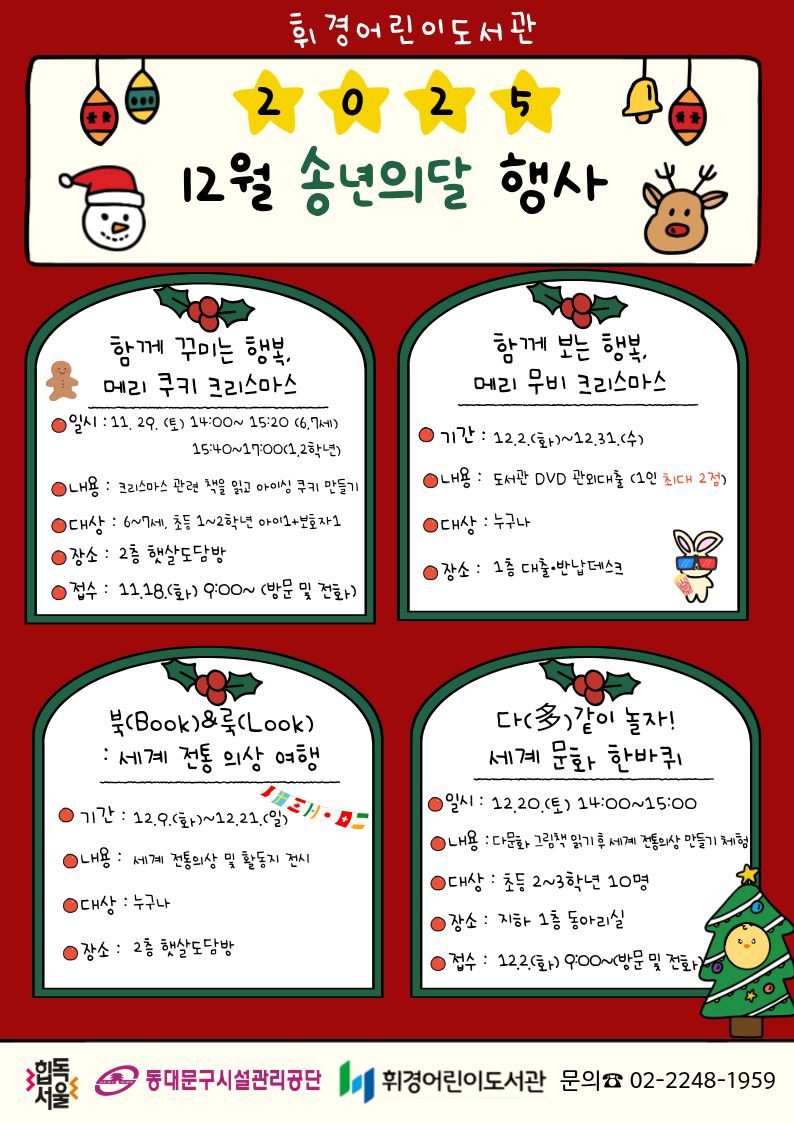 휘경어린이도서관
2025
12월 송년의달 행사
함께 꾸미는 행복,
메리 쿠키 크리스마스
일시 : 11. 29. (토) 14:00~ 15:20 (6,7세)
15:40~17:00(1,2학년)
내용 : 크리스마스 관련 책을 읽고 아이싱 쿠키 만들기
대상 : 6~7세, 초등 1~2학년 아이1+보호자1
장소 : 2층 햇살도담방
접수 : 11.18.(화) 9:00~ (방문 및 전화)
함께 보는 행복,
메리 무비 크리스마스
기간 : 12.2.(화)~12.31.(수)
내용 : 도서관 DVD 관외대출 (1인 최대 2점)
대상 : 누구나
장소 : 1층 대출•반납데스크
북(Book)&룩(Look)
: 세계 전통 의상 여행
기간 : 12.9.(화)~12.21.(일)
내용 : 세계 전통의상 및 활동지 전시
대상 : 누구나
장소 : 2층 햇살도담방
다(多)같이 놀자!
세계 문화 한바퀴
일시 : 12.20.(토) 14:00~15:00
내용 : 다문화 그림책 읽기 후 세계 전통의상 만들기 체험
대상 : 초등 2~3학년 10명
장소 : 지하 1층 동아리실
접수 : 12.2.(화) 9:00~(방문 및 전화)
힙독서울 동대문구시설관리공단 휘경어린이도서관 문의☎ 02-2248-1959